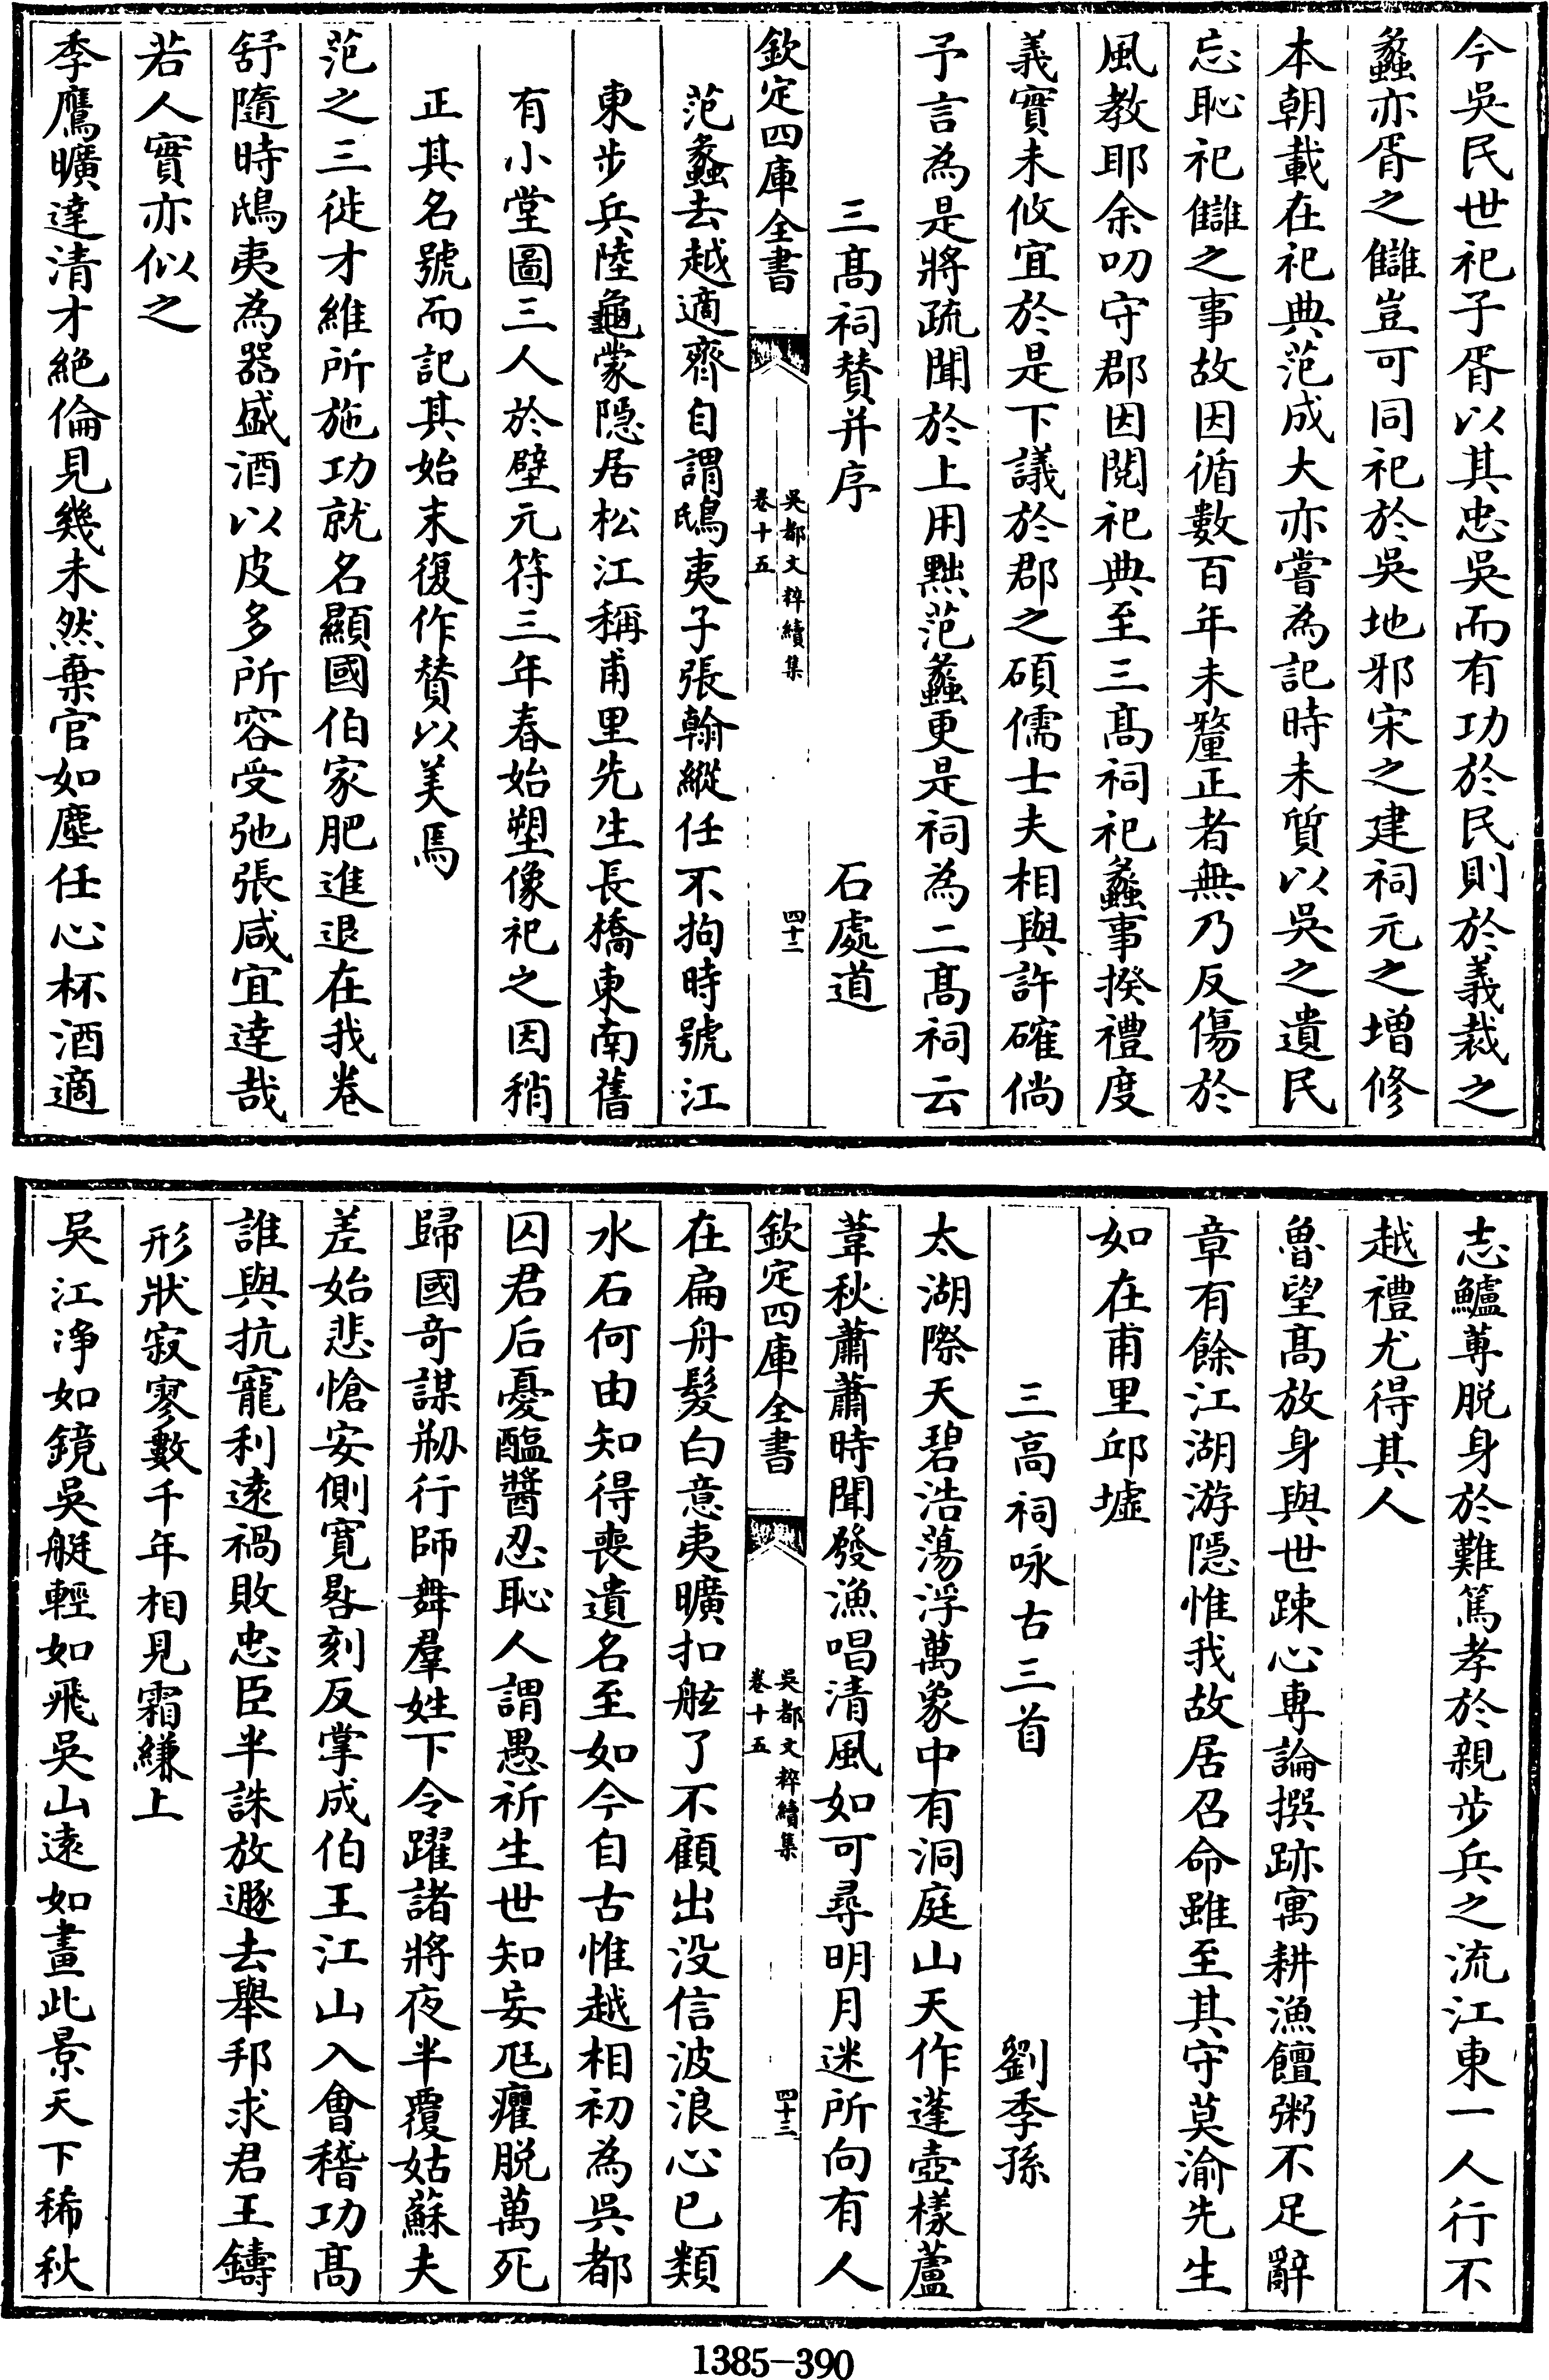 今吳民世祀子胥以其忠吳而有功於民則於義裁之
蠡亦胥之讎豈可同祀於吳地邪宋之建祠元之增修
本朝載在祀典范成大亦嘗為記時未質以吳之遺民
忘恥祀讎之事故因循數百年未釐正者無乃反傷於
風教耶余叨守郡因閱祀典至三髙祠祀蠡事揆禮度
義實未攸宜於是下議於郡之碩儒士夫相與許確倘
予言為是將疏聞於上用黜范蠡更是祠為二髙祠云
三髙祠贊并序 石處道
欽定四庫全書 吳都文粹續集 卷十五 四十二
范蠡去越適齊自謂鴟夷子張翰縱任不拘時號江
東步兵陸龜蒙隱居松江稱甫里先生長橋東南舊
有小堂圖三人於壁元符三年春始塑像祀之因稍
正其名號而記其始末復作贊以美焉
范之三徙才維所施功就名顯國伯家肥進退在我卷
舒隨時鴟夷為器盛酒以皮多所容受弛張咸宜達哉
若人實亦似之
季鷹曠達清才絶倫見幾未然棄官如塵任心杯酒適
志鱸蓴脱身於難篤孝於親步兵之流江東一人行不
越禮尤得其人
魯望髙放身與世踈心専論撰跡寓耕漁饘粥不足辭
章有餘江湖游隱惟我故居召命雖至其守莫渝先生
如在甫里邱墟
三高祠咏古三首 劉季孫
太湖際天碧浩蕩浮萬象中有洞庭山天作蓬壺樣蘆
葦秋蕭蕭時聞發漁唱清風如可尋明月迷所向有人
欽定四庫全書 吳都文粹續集 卷十五 四十三
在扁舟髮白意夷曠扣舷了不顧出没信波浪心已類
水石何由知得喪遺名至如今自古惟越相初為吳都
囚君后憂醢醬忍恥人謂愚祈生世知妄尫癯脱萬死
歸國奇謀剏行師舞羣姓下令躍諸將夜半覆姑蘇夫
差始悲愴安側寛晷刻反掌成伯王江山入會稽功髙
誰與抗寵利逺禍敗忠臣半誅放遯去舉邦求君王鑄
形狀寂寥數千年相見霜縑上
吳江净如鏡吳艇輕如飛吳山逺如畫此景天下稀秋
1385-390